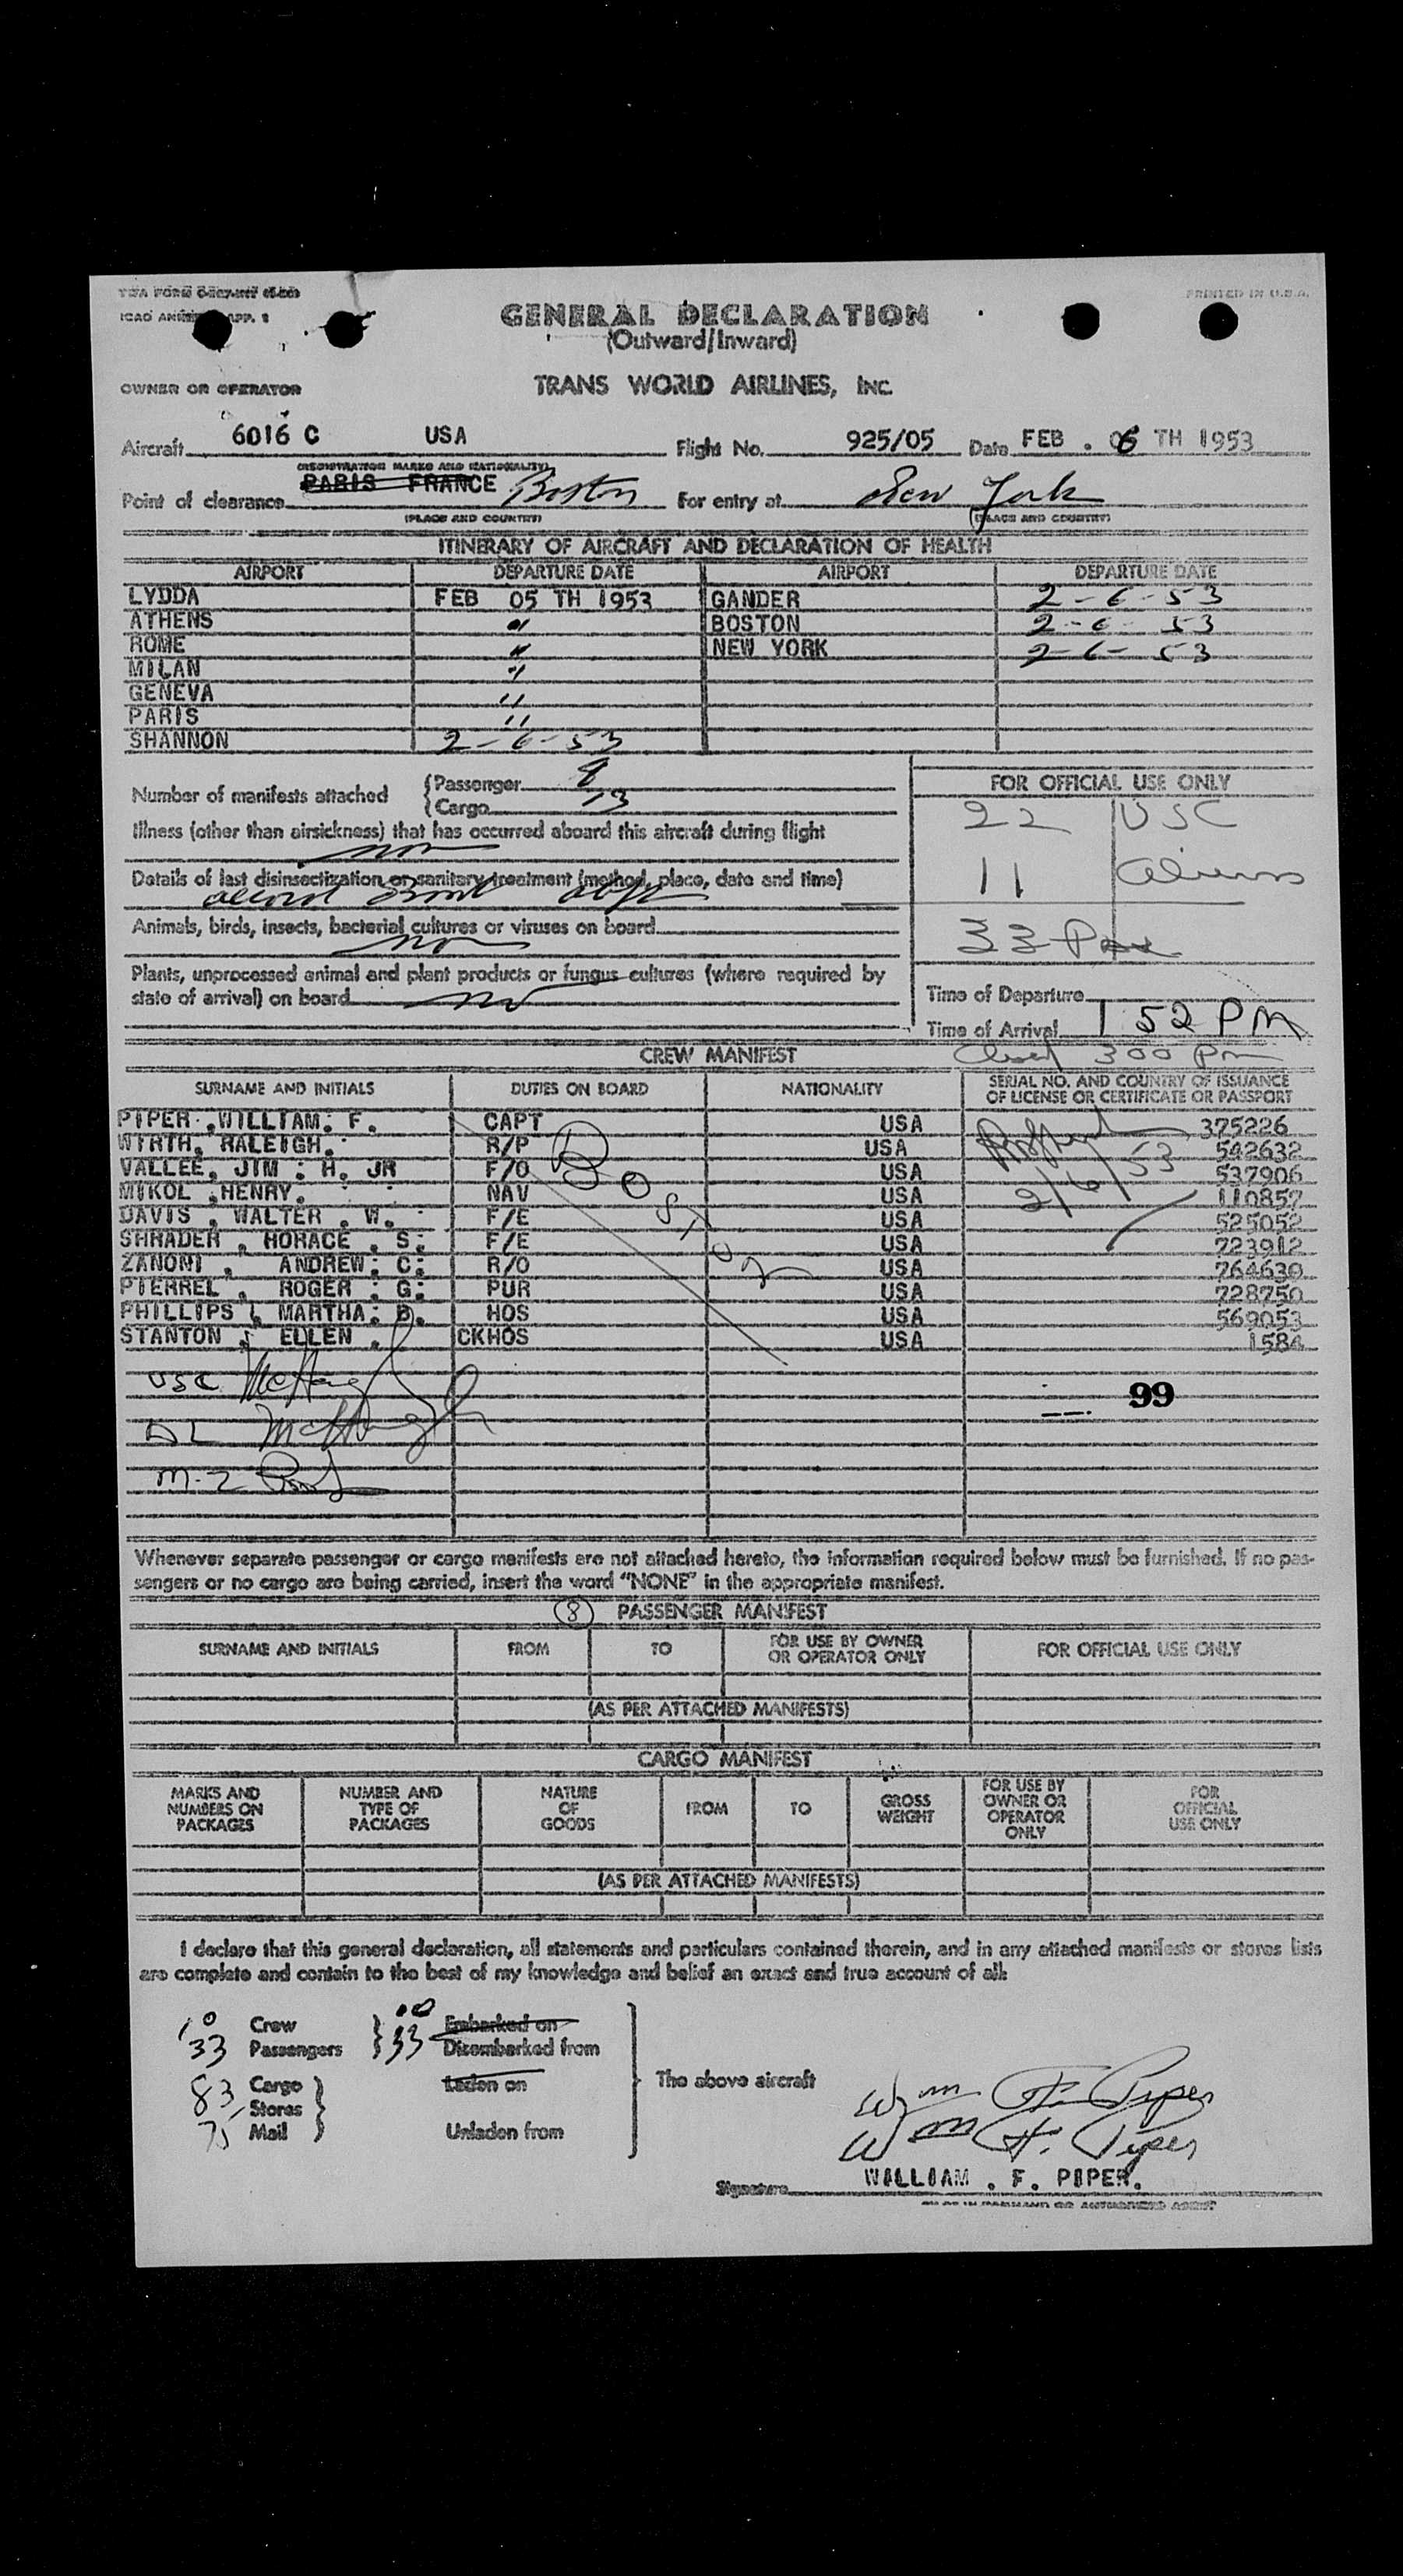 PRINTED IN U.S.A.
GENERAL DECLARATION
(Outward/Inward)
OWNER OR OPERATOR TRANS WORLD AIRLINES, INC.
Aircraft 6016 C USA Flight No. 925/05 Date FEB . 06 TH 1953
(REGISTRATION MARKS AND NATIONALITY)
Point of clearance PARIS FRANCE Boston For entry at New York
(PLACE AND COUNTRY) (PLACE AND COUNTRY)
ITINERARY OF AIRCRAFT AND DECLARATION OF HEALTH
AIRPORT DEPARTURE DATE AIRPORT DEPARTURE DATE
LYDDA FEB 05 TH 1953 GANDER 2-6-53
ATHENS " BOSTON 2-6-53
ROME " NEW YORK 2-6-53
MILAN "
GENEVA "
PARIS "
SHANNON 2-6-53
Number of manifests attached Passenger 8
Cargo 13
FOR OFFICIAL USE ONLY
22 USC
11 Aliens
33 Pax
Illness (other than airsickness) that has occurred aboard this aircraft during flight
Details of last disinsectization or sanitary treatment (method, place, date and time)
Animals, birds, insects, bacterial cultures or viruses on board
Plants, unprocessed animal and plant products or fungus cultures (where required by
state of arrival) on board no
Time of Departure
Time of Arrival 1 52 PM
300 pm
CREW MANIFEST
SURNAME AND INITIALS DUTIES ON BOARD NATIONALITY SERIAL NO. AND COUNTRY OF ISSUANCE OF LICENSE OR CERTIFICATE OR PASSPORT
PIPER .WILLIAM. F. CAPT USA 375226
WIRTH. RALEIGH. R/P USA 542632
VALLEE, JIM . H. JR F/O USA 537906
MIKOL .HENRY. NAV USA 110857
DAVIS . WALTER . W. F/E USA 525052
SHRADER . HORACE . S. F/E USA 723912
ZANONI . ANDREW. C. R/O USA 764630
PIERREL . ROGER . G. PUR USA 728750
PHILLIPS . MARTHA. B. HOS USA 569053
STANTON . ELLEN . CKHOS USA 1584
Boston
2/6/53
USC
99
Whenever separate passenger or cargo manifests are not attached hereto, the information required below must be furnished. If no pas-
sengers or no cargo are being carried, insert the word "NONE" in the appropriate manifest.
8 PASSENGER MANIFEST
SURNAME AND INITIALS FROM TO FOR USE BY OWNER OR OPERATOR ONLY FOR OFFICIAL USE ONLY
(AS PER ATTACHED MANIFESTS)
CARGO MANIFEST
MARKS AND NUMBERS ON PACKAGES NUMBER AND TYPE OF PACKAGES NATURE OF GOODS FROM TO GROSS WEIGHT FOR USE BY OWNER OR OPERATOR ONLY FOR OFFICIAL USE ONLY
(AS PER ATTACHED MANIFESTS)
I declare that this general declaration, all statements and particulars contained therein, and in any attached manifests or stores lists
are complete and contain to the best of my knowledge and belief an exact and true account of all:
10 Crew 10 Embarked on
33 Passengers 33 Disembarked from
83 Cargo Laden on The above aircraft
Stores
75 Mail Unladen from
Wm F. Piper
Wm F. Piper
Signature WILLIAM . F. PIPER.